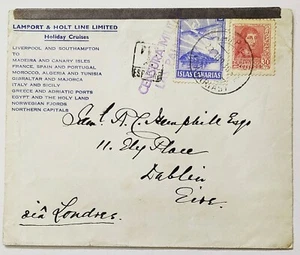 LAMPORT & HOLT LINE LIMITED
Holiday Cruises
LIVERPOOL AND SOUTHAMPTON
TO
MADEIRA AND CANARY ISLES
FRANCE, SPAIN AND PORTUGAL
MOROCCO, ALGERIA AND TUNISIA
GIBRALTAR AND MAJORCA
ITALY AND SICILY
GREECE AND ADRIATIC PORTS
EGYPT AND THE HOLY LAND
NORWEGIAN FJORDS
NORTHERN CAPITALS
CENSURA
ISLAS CANARIAS
30
Hemphill Esqre
11. Ely Place
Dublin
Eire.
via Londres.